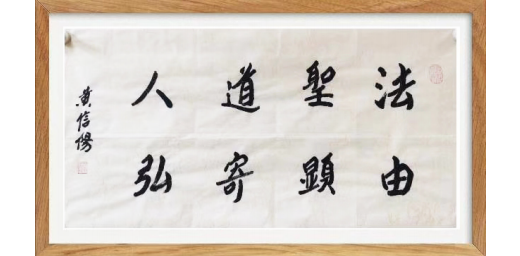 法由
聖顕
道寄
人弘
黄信陽